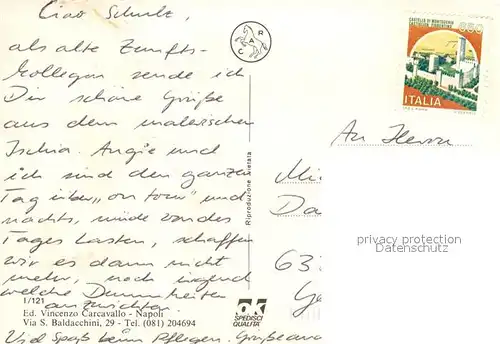 Ciao Schulz,
als alte Zunfts-
kollegen sende ich
Dir schöne Grüße
aus dem malerischen
Ischia. Angie und
ich sind den ganzen
Tag über "on tour" und
nachts, müde von des
Tages Lasten, schaffen
wir es dann nicht
mehr, noch irgend
welche Dummheiten
anzurichten.
Viel Spaß beim Pflegen. Grüße
1/121
Ed. Vincenzo Carcavallo - Napoli
Via S. Baldacchini, 29 - Tel. (081) 204694
C A R
Riproduzione vietata
ok
SPEDISCI
QUALITA'
CASTELLO DI MONTECCHIO
CASTIGLION FIORENTINO
650
ITALIA
An Herrn
Mi
Da
63
Ge
privacy protection
Datenschutz